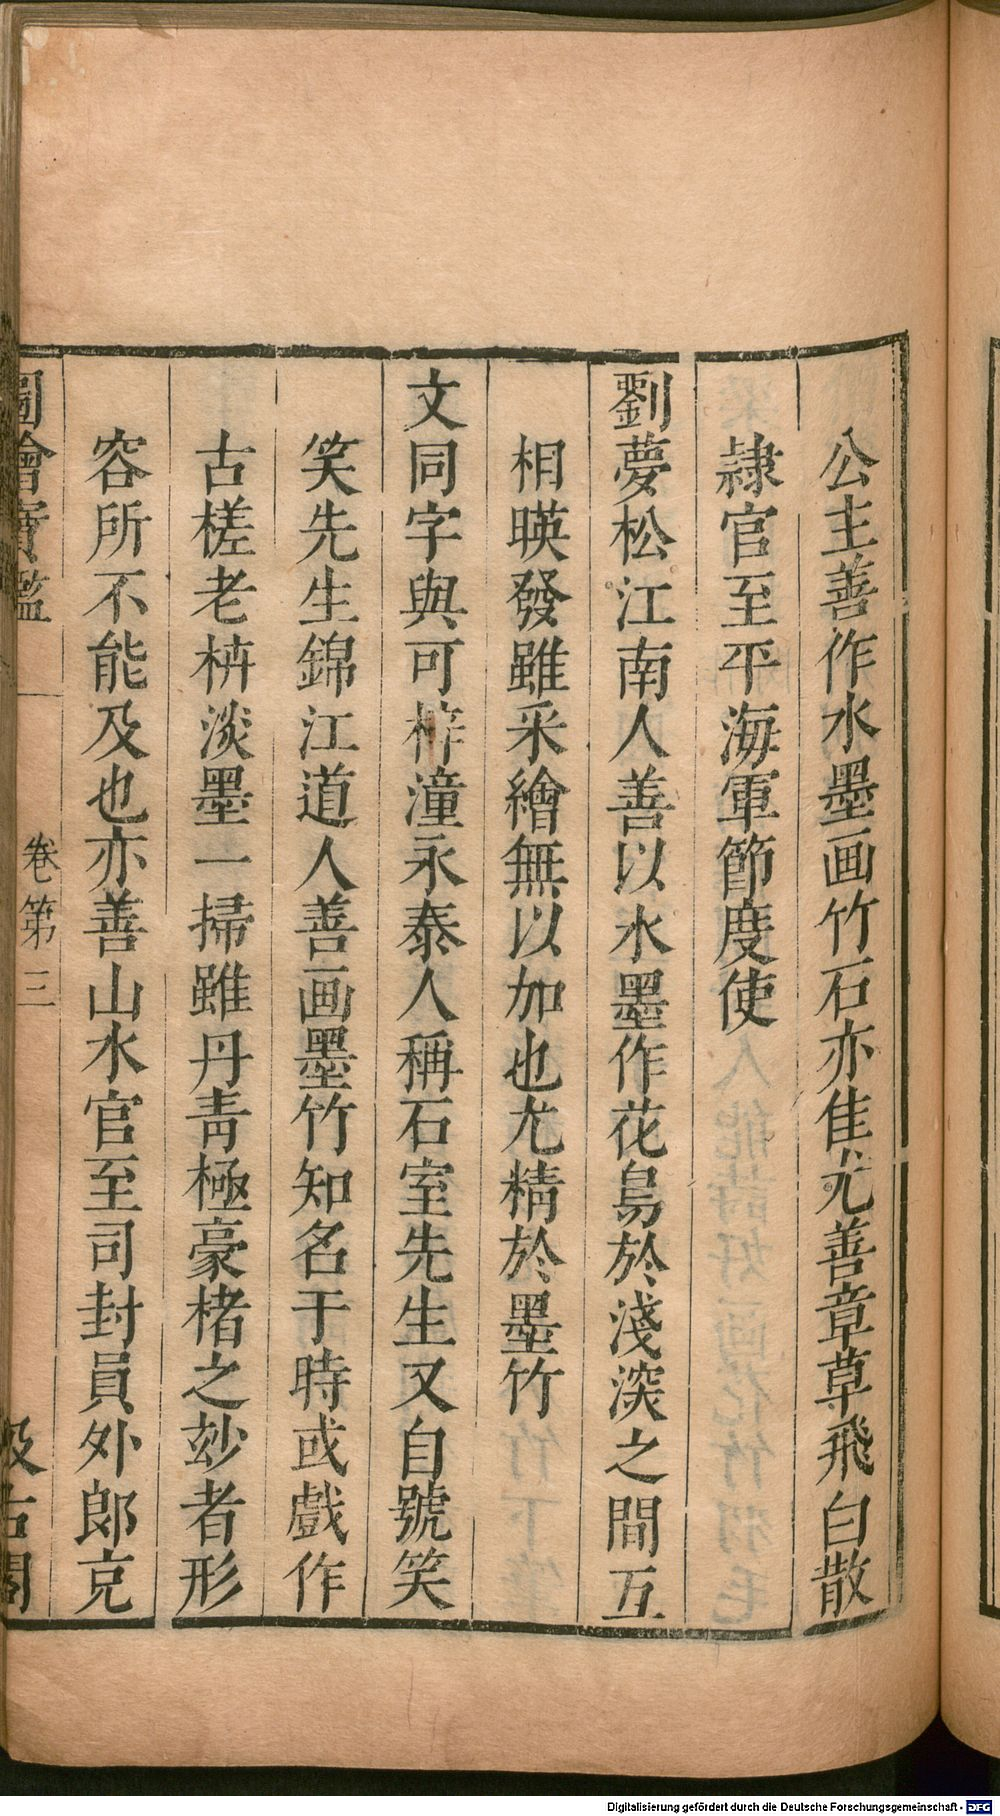 公主善作水墨画竹石亦佳尤善章草飛白散
隷官至平海軍節度使
劉夢松江南人善以水墨作花鳥於淺深之間互
相暎發雖采繪無以加也尤精於墨竹
文同字與可梓潼永泰人稱石室先生又自號笑
笑先生錦江道人善画墨竹知名于時或戲作
古槎老枿淡墨一掃雖丹靑極豪楮之妙者形
容所不能及也亦善山水官至司封員外郎充
圖繪寳鑑
卷第三
汲古閣
Digitalisierung gefördert durch die Deutsche Forschungsgemeinschaft - DFG